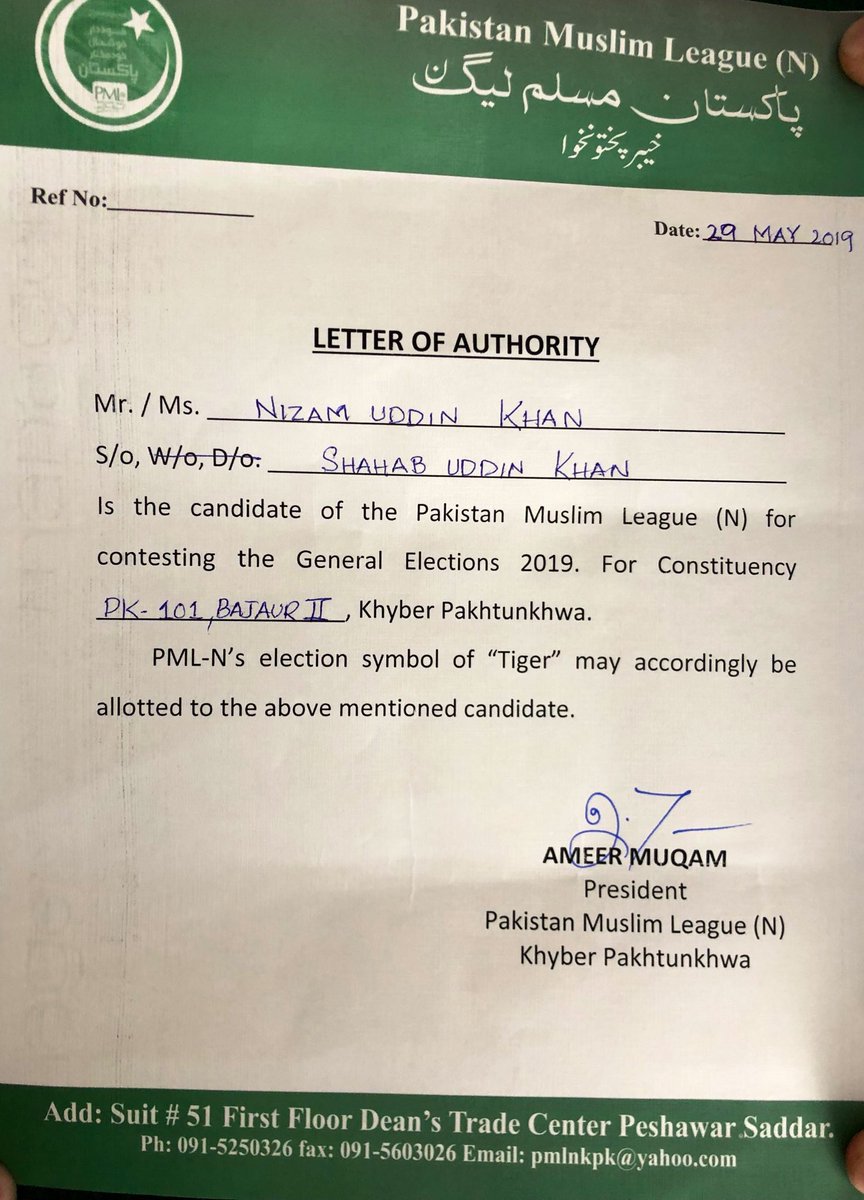 PML-N
پاکستان
Pakistan Muslim League (N)
پاکستان مسلم لیگ ن
خیبر پختونخوا
Ref No:
Date: 29 MAY 2019
LETTER OF AUTHORITY
Mr. / Ms. NIZAM UDDIN KHAN
S/o, W/o, D/o. SHAHAB UDDIN KHAN
Is the candidate of the Pakistan Muslim League (N) for
contesting the General Elections 2019. For Constituency
PK-101, BAJAUR II, Khyber Pakhtunkhwa.
PML-N's election symbol of “Tiger” may accordingly be
allotted to the above mentioned candidate.
AMEER MUQAM
President
Pakistan Muslim League (N)
Khyber Pakhtunkhwa
Add: Suit # 51 First Floor Dean's Trade Center Peshawar Saddar.
Ph: 091-5250326 fax: 091-5603026 Email: pmlnkpk@yahoo.com